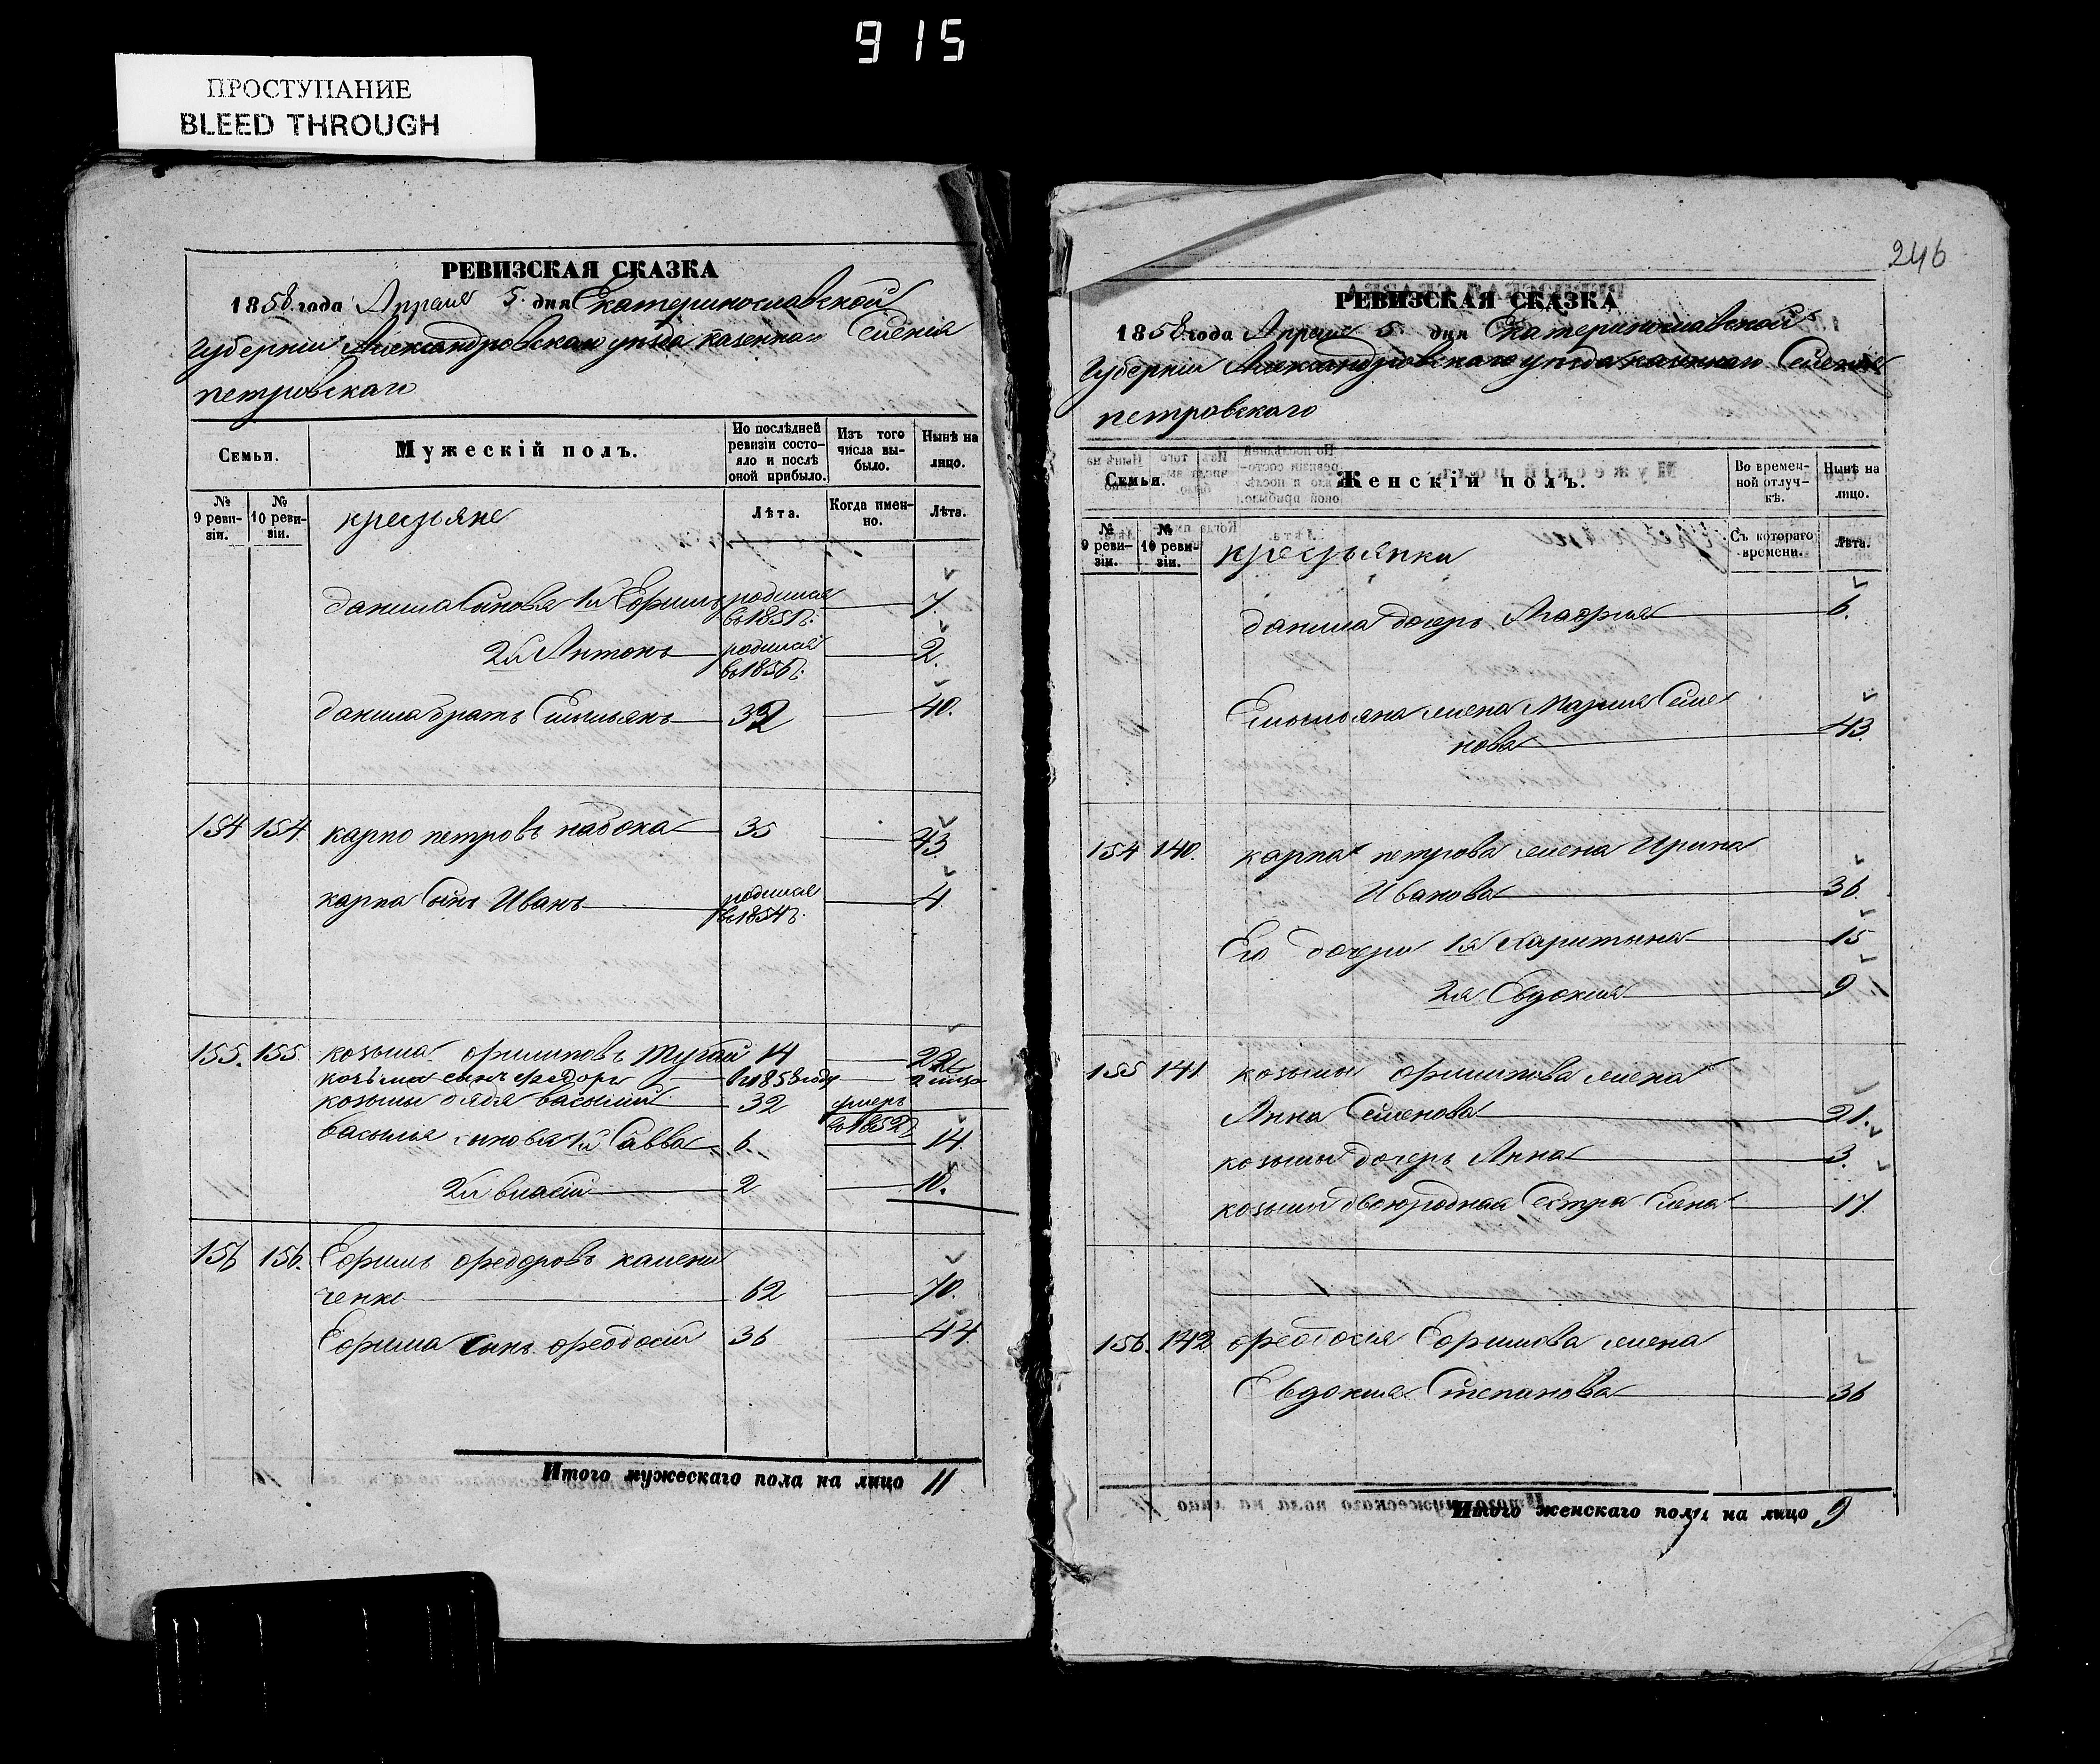 915
ПРОСТУПАНИЕ
BLEED THROUGH
РЕВИЗСКАЯ СКАЗКА
1858 года Апреля 5 дня Екатеринославской
Губерніи Александровскаго уезда казеннаго Селенія
петровскаго
Семьи.
Мужескій полъ.
По послѣдней ревизіи состояло и послѣ оной прибыло.
Изъ того числа выбыло.
Нынѣ на лицо.
№ 9 ревизіи.
№ 10 ревизіи.
крестьяне
Лѣта.
Когда именно.
Лѣта.
данила Сыновья 1й Ефимъ родился въ 1851 г. 7
2й Антонъ родился въ 1856 г. 2.
данила братъ Емельянъ 32 40.
154 154. карпо петровъ набока 35 43.
карпа Сынъ Иванъ родился въ 1854 г. 4
155. 155 козьма филиповъ Тугай 14 22
козьмы сынъ Федоръ въ 1858 году
козьмы дядя василий 32 умеръ въ 1852 г.
василья сыновья 1й Савва 6. 14.
2й власій 2 10.
156 156. Ефимъ федоровъ камени
ченко 62 70.
Ефима Сынъ феодосій 36 44.
Итого мужескаго пола на лицо 11
246
РЕВИЗСКАЯ СКАЗКА
1858 года Апреля 5 дня Екатеринославской
Губерніи Александровскаго уезда казеннаго Селенія
петровскаго
Семьи.
Женскій полъ.
Во временной отлучкѣ.
Нынѣ на лицо.
№ 9 ревизіи.
№ 10 ревизіи.
крестьянки
Съ котораго времени.
Лѣта.
данила дочерь Мафрия 6.
Емельяна жена Мария Семе
нова 43.
154 140. карпа петрова жена Ирина
Иванова 36.
Его дочери 1я Харитына 15
2я Евдокия 9
155 141 козьмы филипова жена
Анна Семенова 21.
козьмы дочерь Анна 3.
козьмы двоюродная Сестра Елена 17
156. 142 феодосия Ефимова жена
Евдокия Степанова 36
Итого женскаго пола на лицо 9